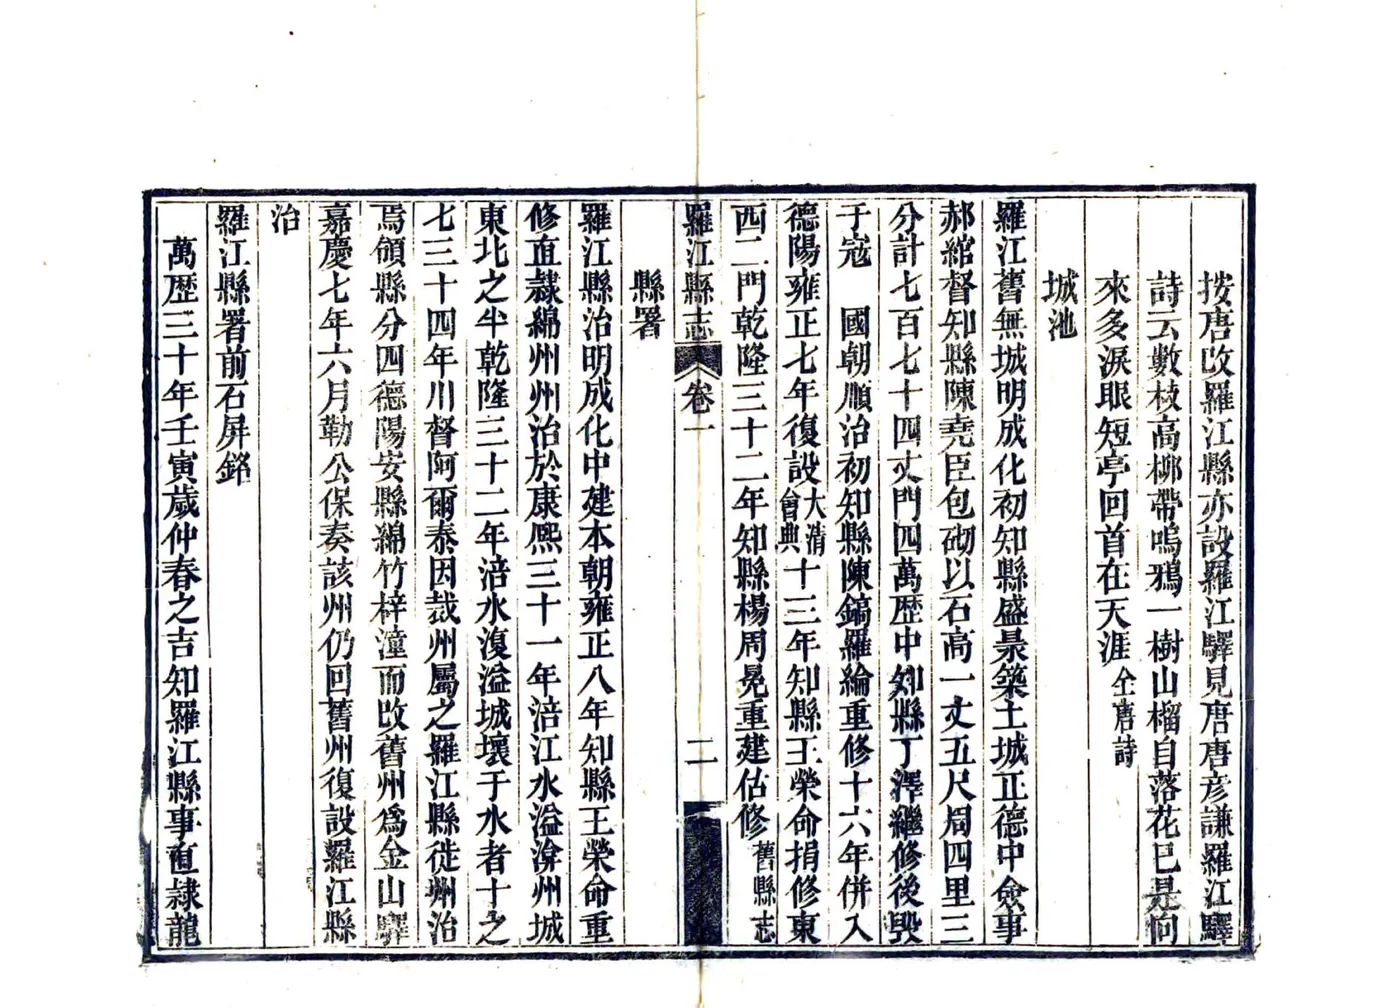 按唐改羅江縣亦設羅江驛見唐唐彥謙羅江驛
詩云數枝高柳帶鳴鴉一樹山榴自落花已是向
來多淚眼短亭回首在天涯仝唐詩
城池
羅江舊無城明成化初知縣盛景築土城正德中僉事
郝綰督知縣陳堯臣包砌以石高一丈五尺周四里三
分計七百七十四丈門四萬歷中知縣丁澤繼修後毀
于寇　國朝順治初知縣陳鎬羅綸重修十六年併入
德陽雍正七年復設大清會典十三年知縣王榮命捐修東
西二門乾隆三十二年知縣楊周冕重建估修舊縣志
羅江縣志　卷一　二
縣署
羅江縣治明成化中建本朝雍正八年知縣王榮命重
修直隷綿州州治於康熙三十一年涪江水溢渰州城
東北之半乾隆三十二年涪水復溢城壞于水者十之
七三十四年川督阿爾泰因裁州屬之羅江縣徙州治
焉領縣分四德陽安縣綿竹梓潼而改舊州爲金山驛
嘉慶七年六月勒公保奏該州仍回舊州復設羅江縣
治
羅江縣署前石屏銘
萬歷三十年壬寅歲仲春之吉知羅江縣事直隷龍